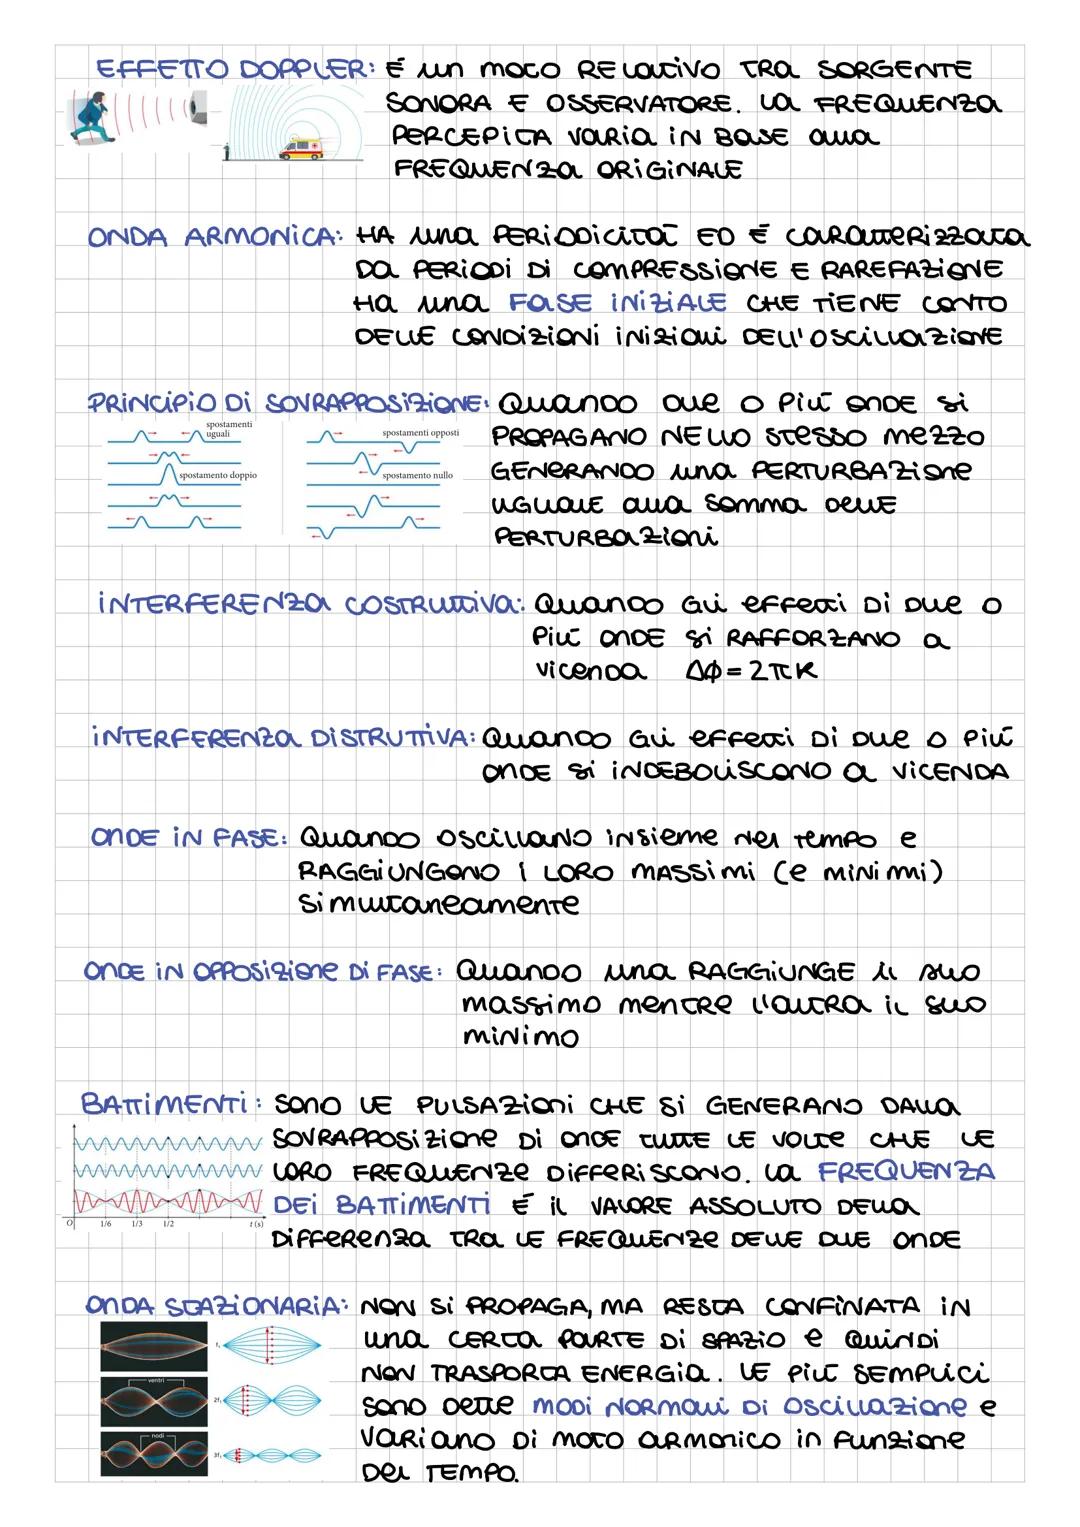 EFFETTO DOPPLER: É un moto RELATIVO TRA SORGENTE
SONORA E OSSERVATORE. La FREQUENZA
PERCEPITA varia in base alla
FREQUENZA ORIGINALE
ONDA ARMONICA: HA una PERIODICITÁ ED É caratterizzata
Da PERIODI DI COMPRESSIONE E RAREFAZIONE
Ha una FASE INIZIALE CHE TIENE CONTO
DELLE CONDIZIONI iniziali DELL'OSCILLAZIONE
PRINCIPIO DI SOVRAPPOSIZIONE: Quando due o Più onde si
PROPAGANO NELLO stesso mezzo
GENERANDO una PERTURBAZIONE
uguale alla somma delle
PERTURBAZIONI
spostamenti
uguali
spostamenti opposti
spostamento doppio
spostamento nullo
INTERFERENZA COSTRUTTIVA: Quando Gli effetti Di Due o
Più onde si RAFFORZANO a
vicenda Δϕ = 2πK
INTERFERENZA DISTRUTTIVA: Quando Gli effetti Di Due o Più
onde si INDEBOLISCONO a VICENDA
ONDE IN FASE: Quando oscillano insieme nel tempo e
RAGGIUNGONO I LORO MASSIMI (e minimi)
simultaneamente
ONDE IN OPPOSIZIONE DI FASE: Quando una RAGGIUNGE il suo
massimo mentre l'altra il suo
minimo
BATTIMENTI: SONO LE PULSAZIONI CHE SI GENERANO DALLA
SOVRAPPOSIZIONE DI ONDE TUTTE LE VOLTE CHE LE
LORO FREQUENZE DIFFERISCONO. La FREQUENZA
DEI BATTIMENTI É il VALORE ASSOLUTO DELLA
DIFFERENZA TRA LE FREQUENZE DELLE DUE ONDE
O 1/6 1/3 1/2 t (s)
ONDA STAZIONARIA: NON SI PROPAGA, MA RESTA CONFINATA IN
una CERTA PARTE DI SPAZIO e Quindi
NON TRASPORTA ENERGIA. LE Più SEMPLICI
sono dette modi normali Di oscillazione e
variano Di moto armonico in funzione
Del TEMPO.
f₁
ventri
2f₁
nodi
3f₁